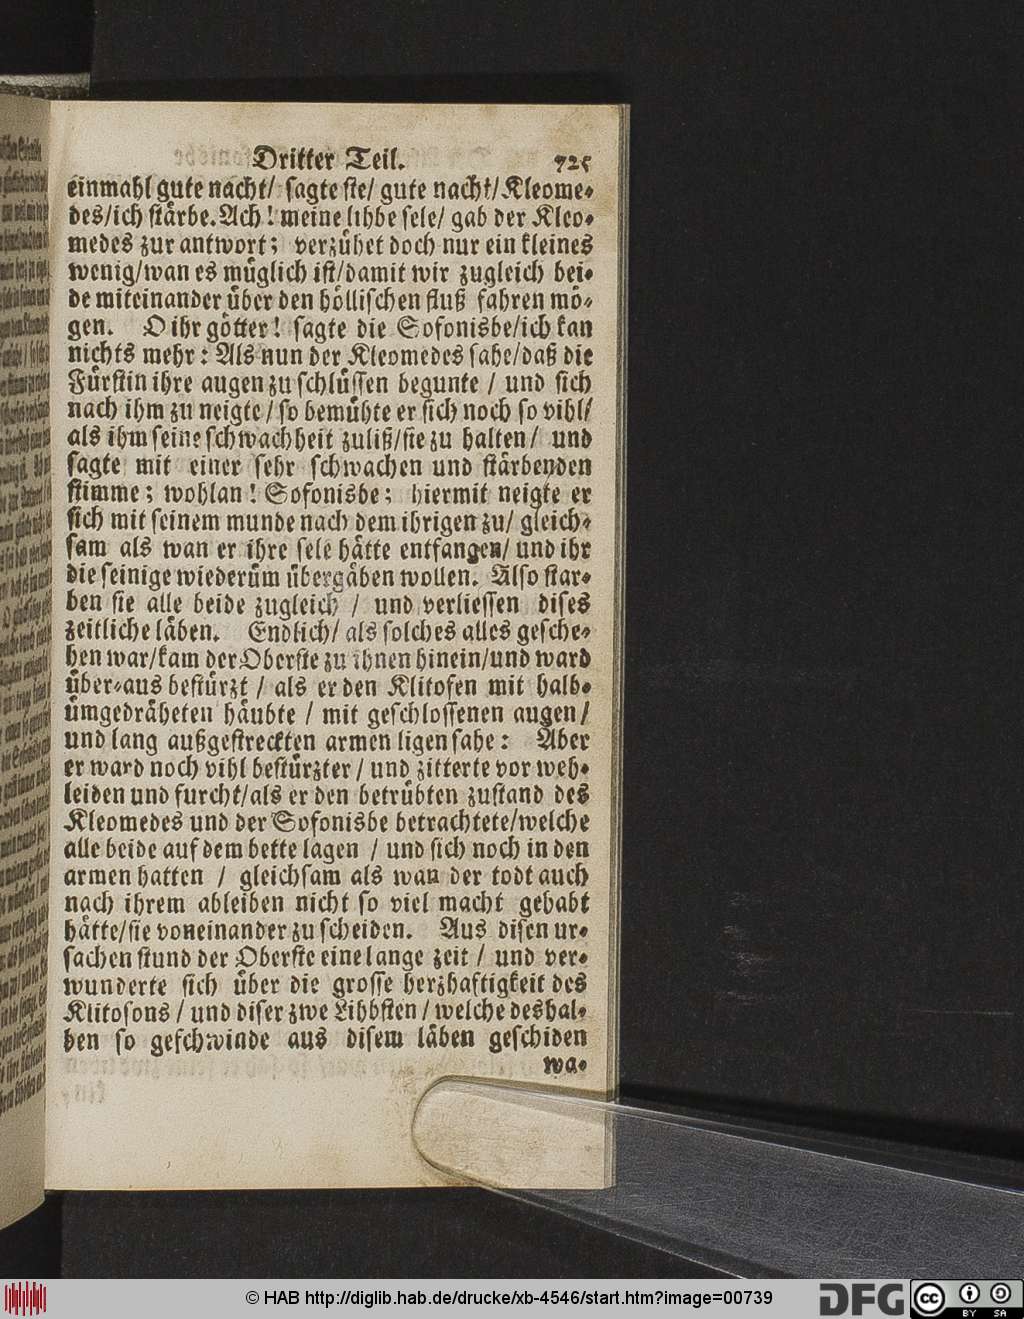 Dritter Teil. 725
einmahl gute nacht/ sagte sie/ gute nacht/ Kleome-
des/ich stärbe. Ach! meine libbe sele/ gab der Kleo-
medes zur antwort; verzühet doch nur ein kleines
wenig/wan es müglich ist/damit wir zugleich bei-
de miteinander über den höllischen fluß fahren mö-
gen. O ihr götter! sagte die Sofonisbe/ich kan
nichts mehr: Als nun der Kleomedes sahe/daß die
Fürstin ihre augen zu schlüssen begunte / und sich
nach ihm zu neigte / so bemühte er sich noch so vihl/
als ihm seine schwachheit zuliß/sie zu halten/ und
sagte mit einer sehr schwachen und stärbenden
stimme; wohlan! Sofonisbe; hiermit neigte er
sich mit seinem munde nach dem ihrigen zu/ gleich-
sam als wan er ihre sele hätte entfangen/ und ihr
die seinige wiederüm übergäben wollen. Also star-
ben sie alle beide zugleich / und verliessen dises
zeitliche läben. Endlich/ als solches alles gesche-
hen war/kam der Oberste zu ihnen hinein/und ward
über-aus bestürzt / als er den Klitofen mit halb-
ümgedräheten häubte / mit geschlossenen augen/
und lang außgestreckten armen ligen sahe: Aber
er ward noch vihl bestürzter / und zitterte vor weh-
leiden und furcht/als er den betrübten zustand des
Kleomedes und der Sofonisbe betrachtete/welche
alle beide auf dem bette lagen / und sich noch in den
armen hatten / gleichsam als wan der todt auch
nach ihrem ableiben nicht so viel macht gehabt
hätte/sie voneinander zu scheiden. Aus disen ur-
sachen stund der Oberste eine lange zeit / und ver-
wunderte sich über die grosse herzhaftigkeit des
Klitosons / und diser zwe Libbsten / welche deshal-
ben so geschwinde aus disem läben geschiden
wa-
© HAB http://diglib.hab.de/drucke/xb-4546/start.htm?image=00739
DFG
cc BY SA